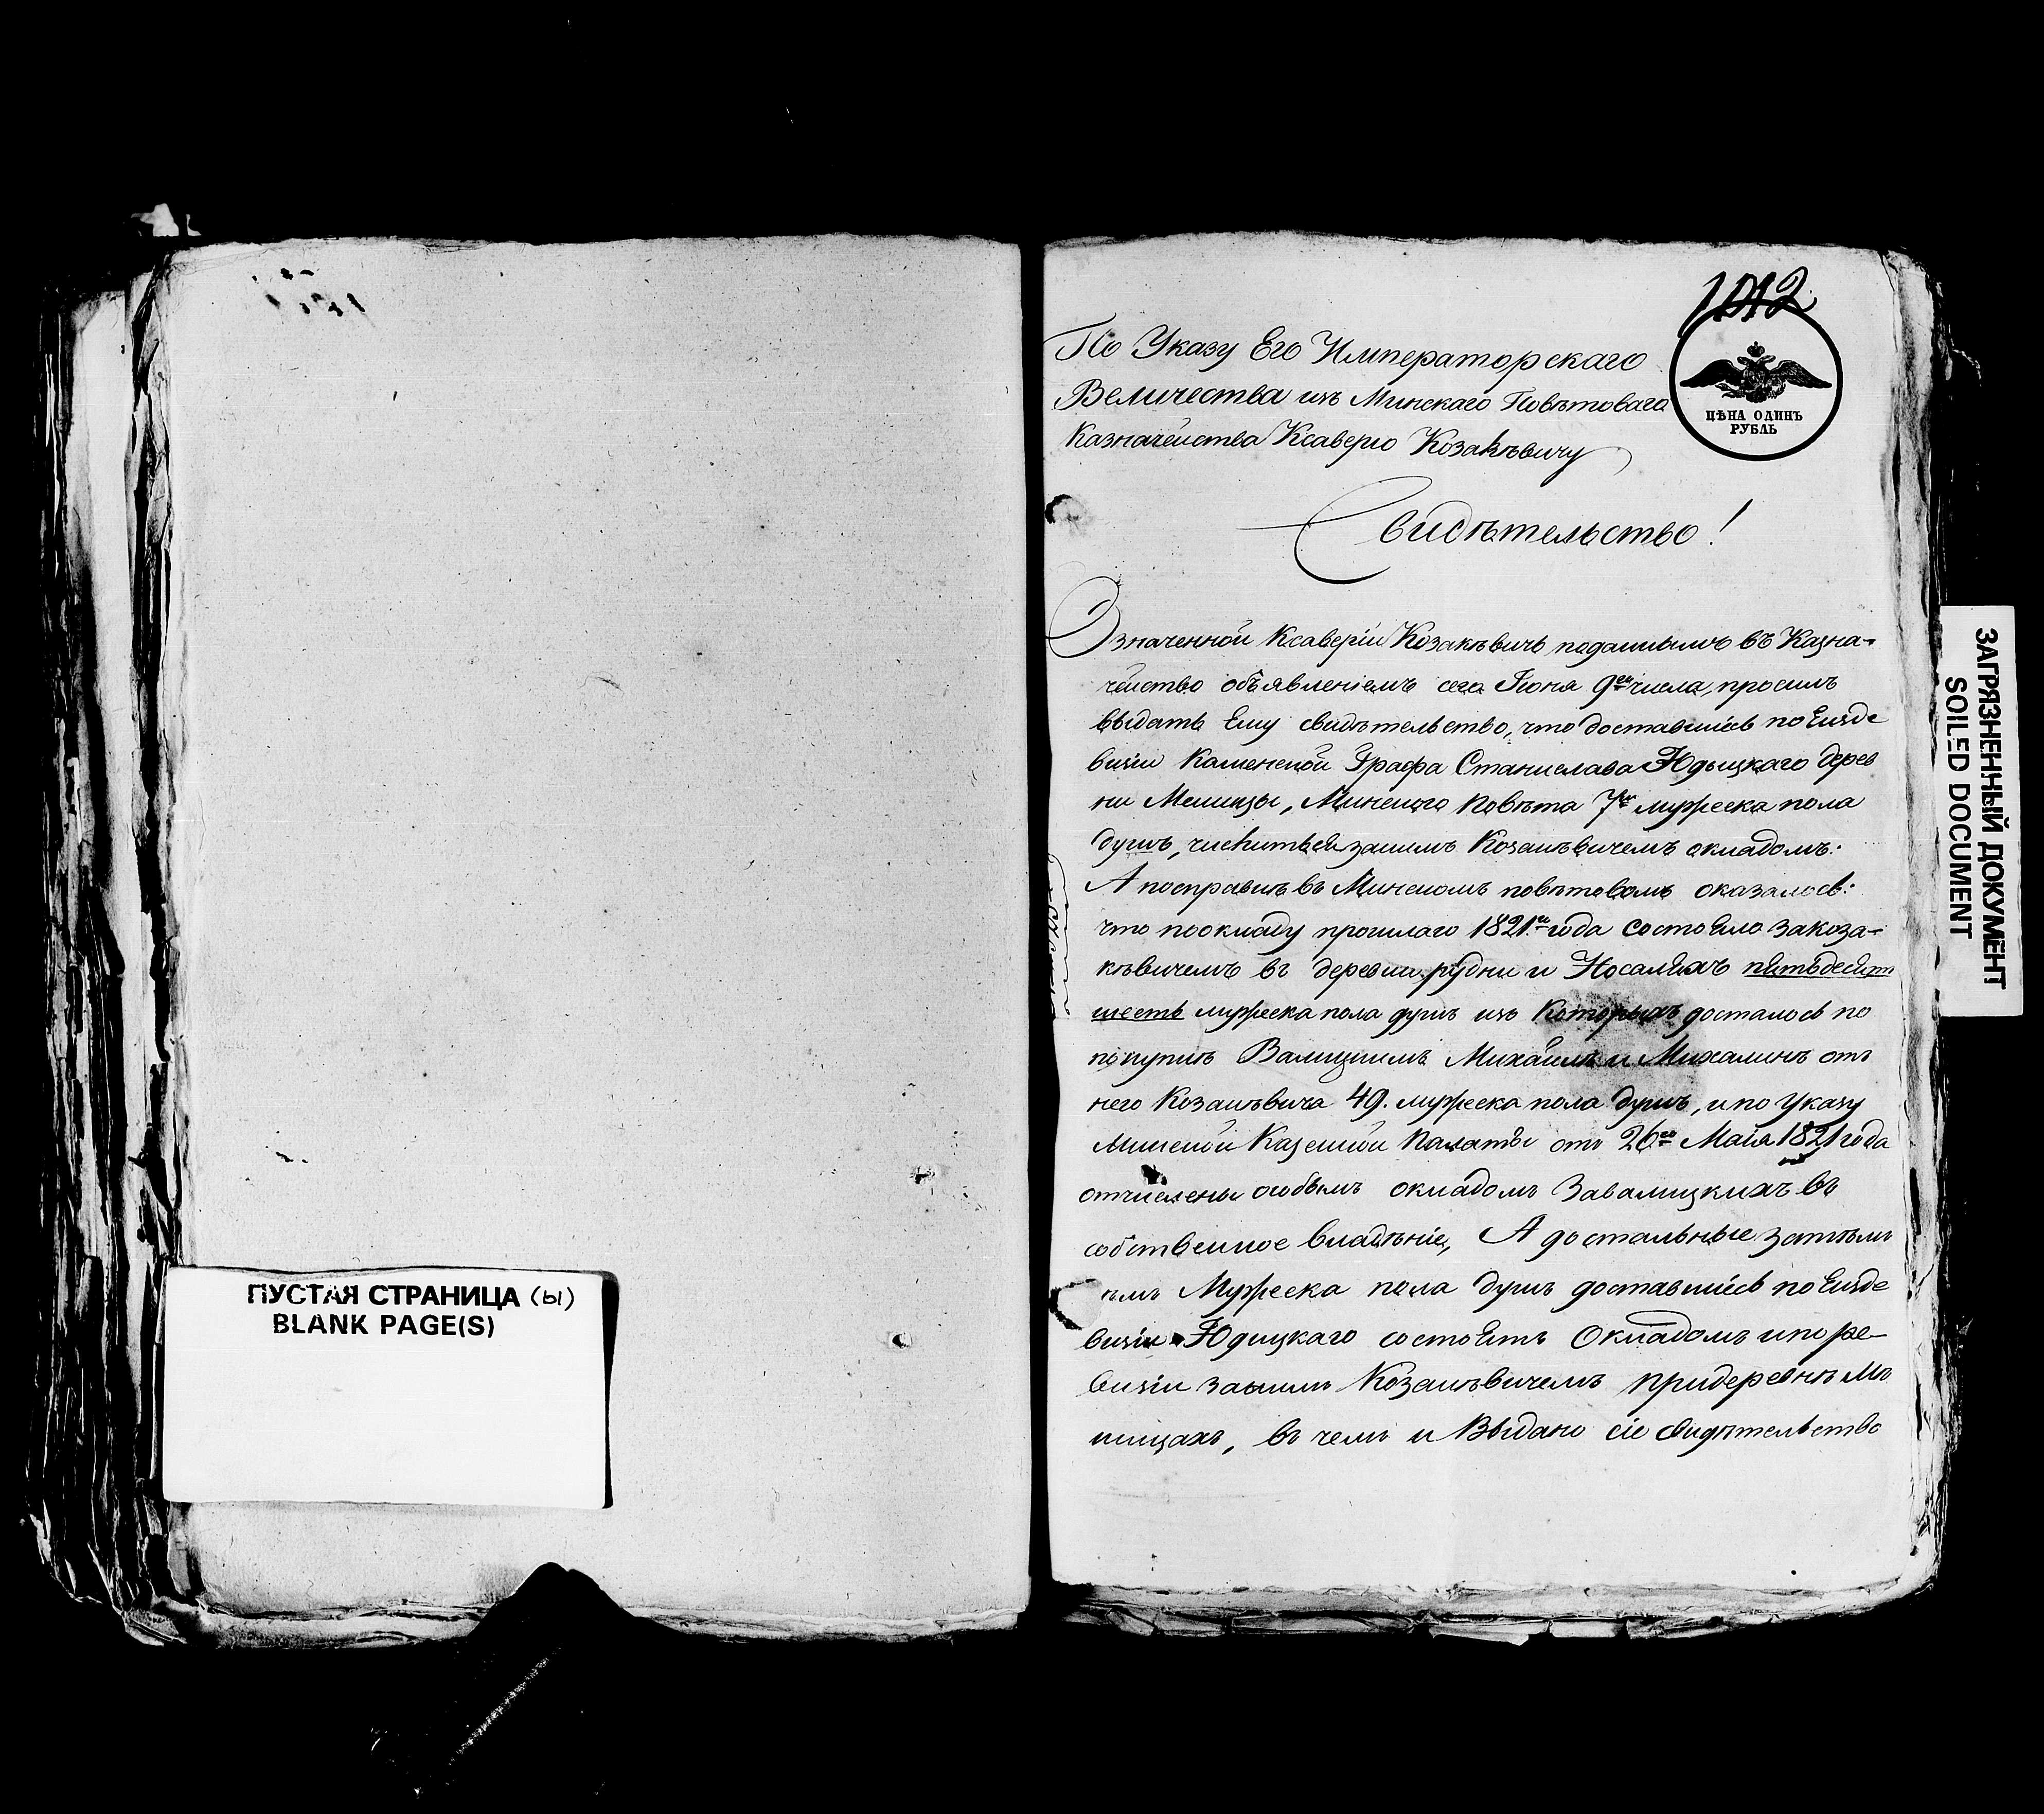 1012
По Указу Его Императорскаго
Величества изъ Минскаго Повѣтоваго
Казначейства Ксаверію Козакѣвичу
ЦѢНА ОДИНЪ
РУБЛЬ
Свидѣтельство!
Означенной Ксаверій Козакѣвичь поданнымъ въ Казна-
чейство объявленіемъ сего Іюня 9го числа, просилъ
выдать Ему свидѣтельство, что доставшіесь по Екзде
визіи Каменской Графа Станислава Юдыцкаго дерев
ни Мешицы, Минского Повѣта 7мь мужеска пола
душъ, числиться занимъ Козакѣвичемъ окладомъ:
А посправкѣ въ Минскомъ повѣтовомъ оказалось:
что поокладу прошлаго 1821го года состояло закоза-
кѣвичемъ въ деревни рудни и Носаляхъ пятьдесятъ
шесть мужеска пола душъ изъ Которыхъ досталось по
покупкѣ Валицкимъ Михаилъ и Михалинъ отъ
него Козакѣвича 49. мужеска пола душъ, и по Указу
Минской Казенной Палаты отъ 26го Маія 1821 года
отчислены особымъ окладомъ Завалицкихъ въ
собственное владѣніе, А достальные затѣмъ
Мужеска пола душъ доставшіесь по Екзде
визіи Юдицкаго состоятъ Окладомъ и по ре-
визіи занимъ Козакѣвичемъ придеревнѣ Мѣ
шицахъ, въ чемъ и Выдано сіе свидѣтельство
ПУСТАЯ СТРАНИЦА (ы)
BLANK PAGE(S)
ЗАГРЯЗНЕННЫЙ ДОКУМЕНТ
SOILED DOCUMENT